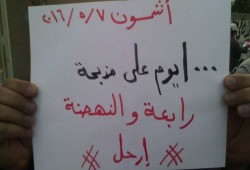 أشمون ٢٠١٦/٥/٧
١٠٠٠ يوم على مذبحة
رابعة والنهضة
# إرحل #